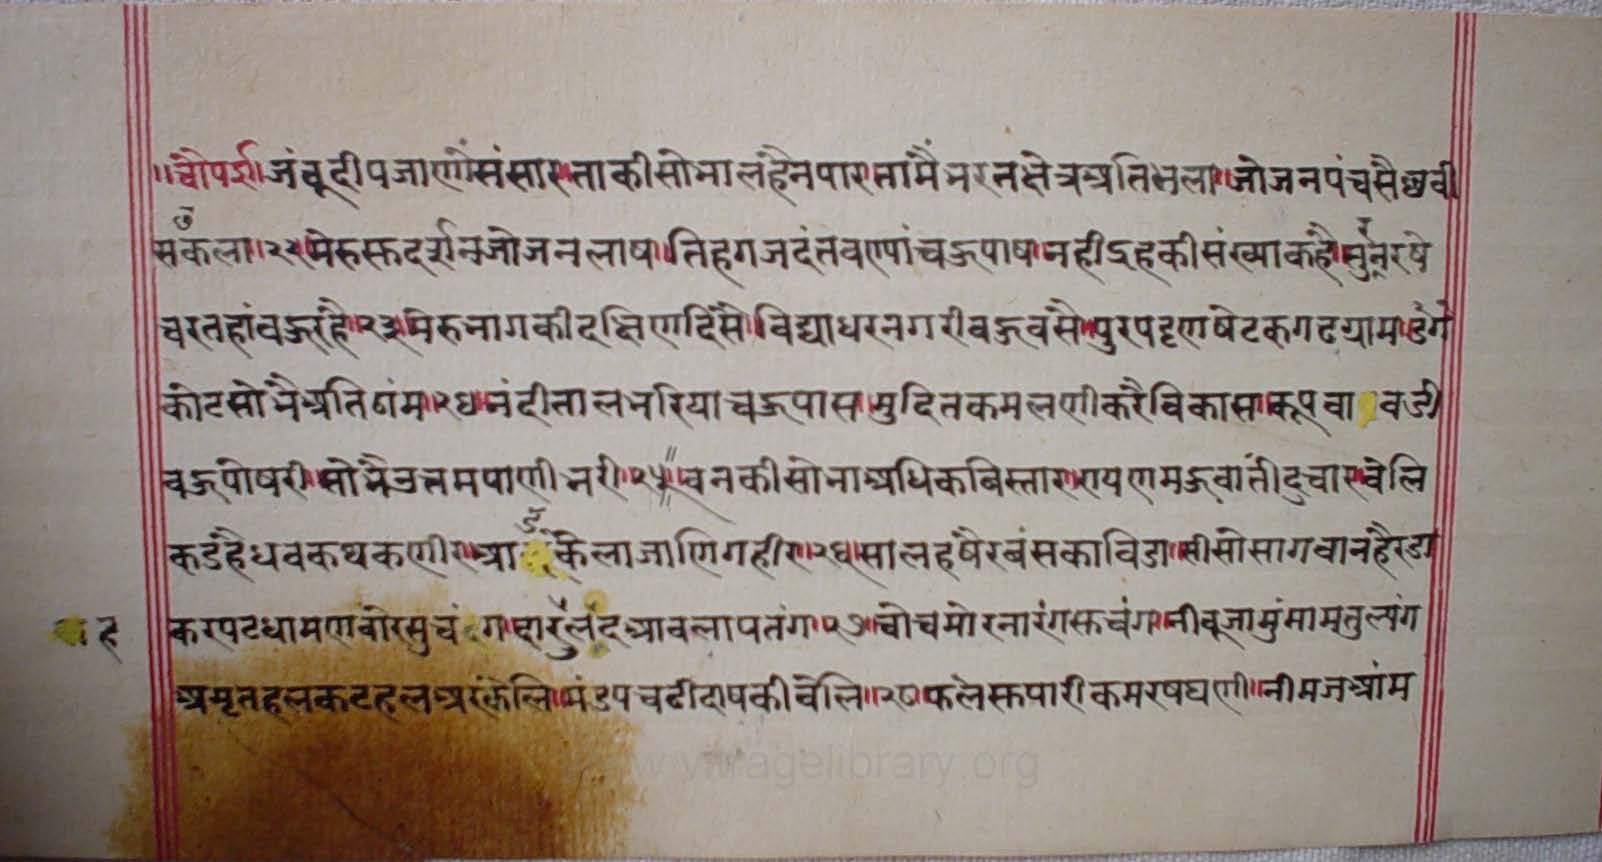 ॥चौपई॥जंबूदीपजाणौंसंसार॥ताकीसोभालहैनपार॥तामैंभरतक्षेत्रअतिभला॥जोजनपंचसैछवी
सकला॥२२॥मेरुसुदर्शनजोजनलाष॥तिहगजदंतवण्णांचऊपाष॥नहीऽहकीसंख्याकहै॥सुनरषे
चरतहांवऊरहै॥२३॥मेरुभागकीदक्षिणदिसै॥विद्याधरनगरीबऊवसै॥पुरपट्टणषेटकगढग्राम॥
कोटसोभैअतिठांम॥२४॥नंदीतालभरियाचऊपास॥मुदितकमलणीकरैविकास॥कूपवा वडी
चऊपोषरी॥सोभैउत्तमपाणीभरी॥२५॥वनकीसोभाअधिकबिस्तार॥रायणमऊवातीदुचार॥वेलि
कडंहैधवकथकणीर॥आ केलाजाणिगहीर॥२६॥सालहषैरबंसकाविडा॥सीसोसागवानहैरडा
करपटधामणबोरसुचंग॥दारुलद्रआवलापतंग॥२७॥चोचमोरनारंगसुचंग॥नीबूजामुंमामतुल्यंग
अमृतहलकटहलअरुकेलि॥मंडपचढीदाषकीवेलि॥२८॥फलेसुपारीकमरषघणी॥नीमजआंम